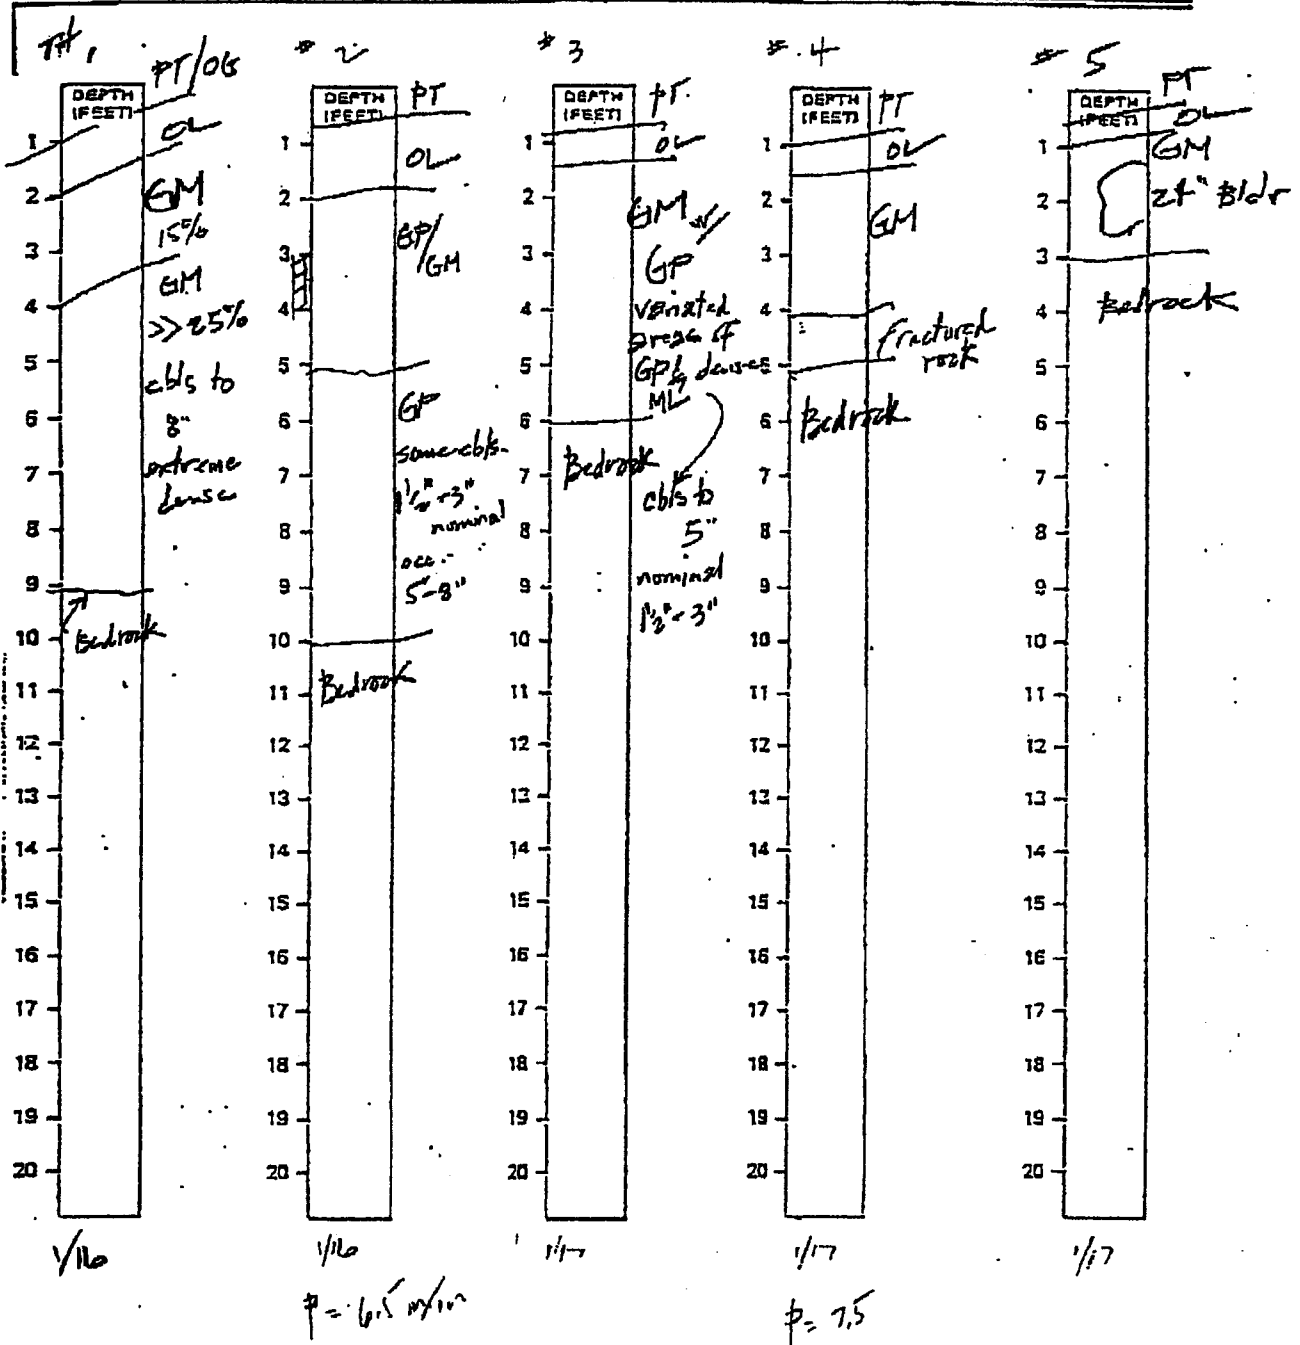 TH 1
PT/OG
DEPTH
(FEET)
OL
GM
15%
GM
>> 25%
cbls to
8"
extreme
dense
Bedrock
1
2
3
4
5
6
7
8
9
10
11
12
13
14
15
16
17
18
19
20
1/16
# 2
PT
DEPTH
(FEET)
OL
GP/
GM
GP
some cbls.
1 1/2" - 3"
nominal
occ.
5"-8"
Bedrock
1
2
3
4
5
6
7
8
9
10
11
12
13
14
15
16
17
18
19
20
1/16
P = 6.5
# 3
PT.
DEPTH
(FEET)
OL
GM w/
GP
areas of
GP &
ML
cbls to
5"
nominal
1 1/2" - 3"
Bedrock
1
2
3
4
5
6
7
8
9
10
11
12
13
14
15
16
17
18
19
20
1/17
# 4
PT
DEPTH
(FEET)
OL
GM
Fractured
rock
Bedrock
1
2
3
4
5
6
7
8
9
10
11
12
13
14
15
16
17
18
19
20
1/17
P = 7.5
# 5
PT
DEPTH
(FEET)
OL
GM
24" Bldr
Bedrock
1
2
3
4
5
6
7
8
9
10
11
12
13
14
15
16
17
18
19
20
1/17